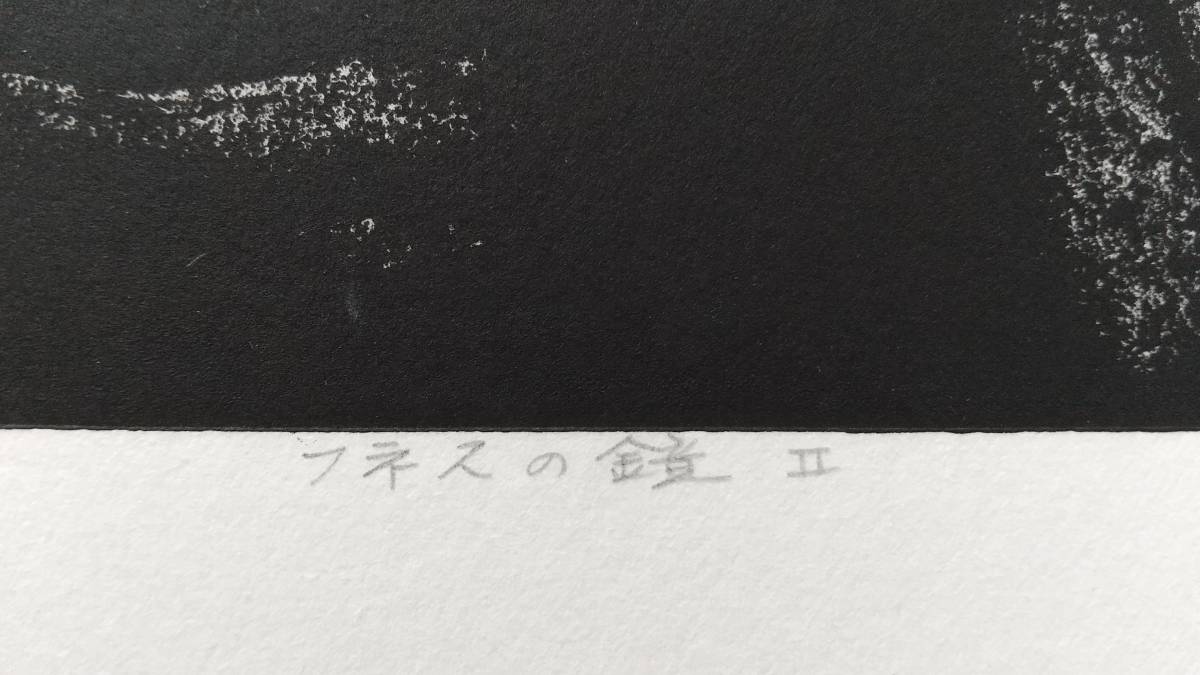 フネスの鏡 II